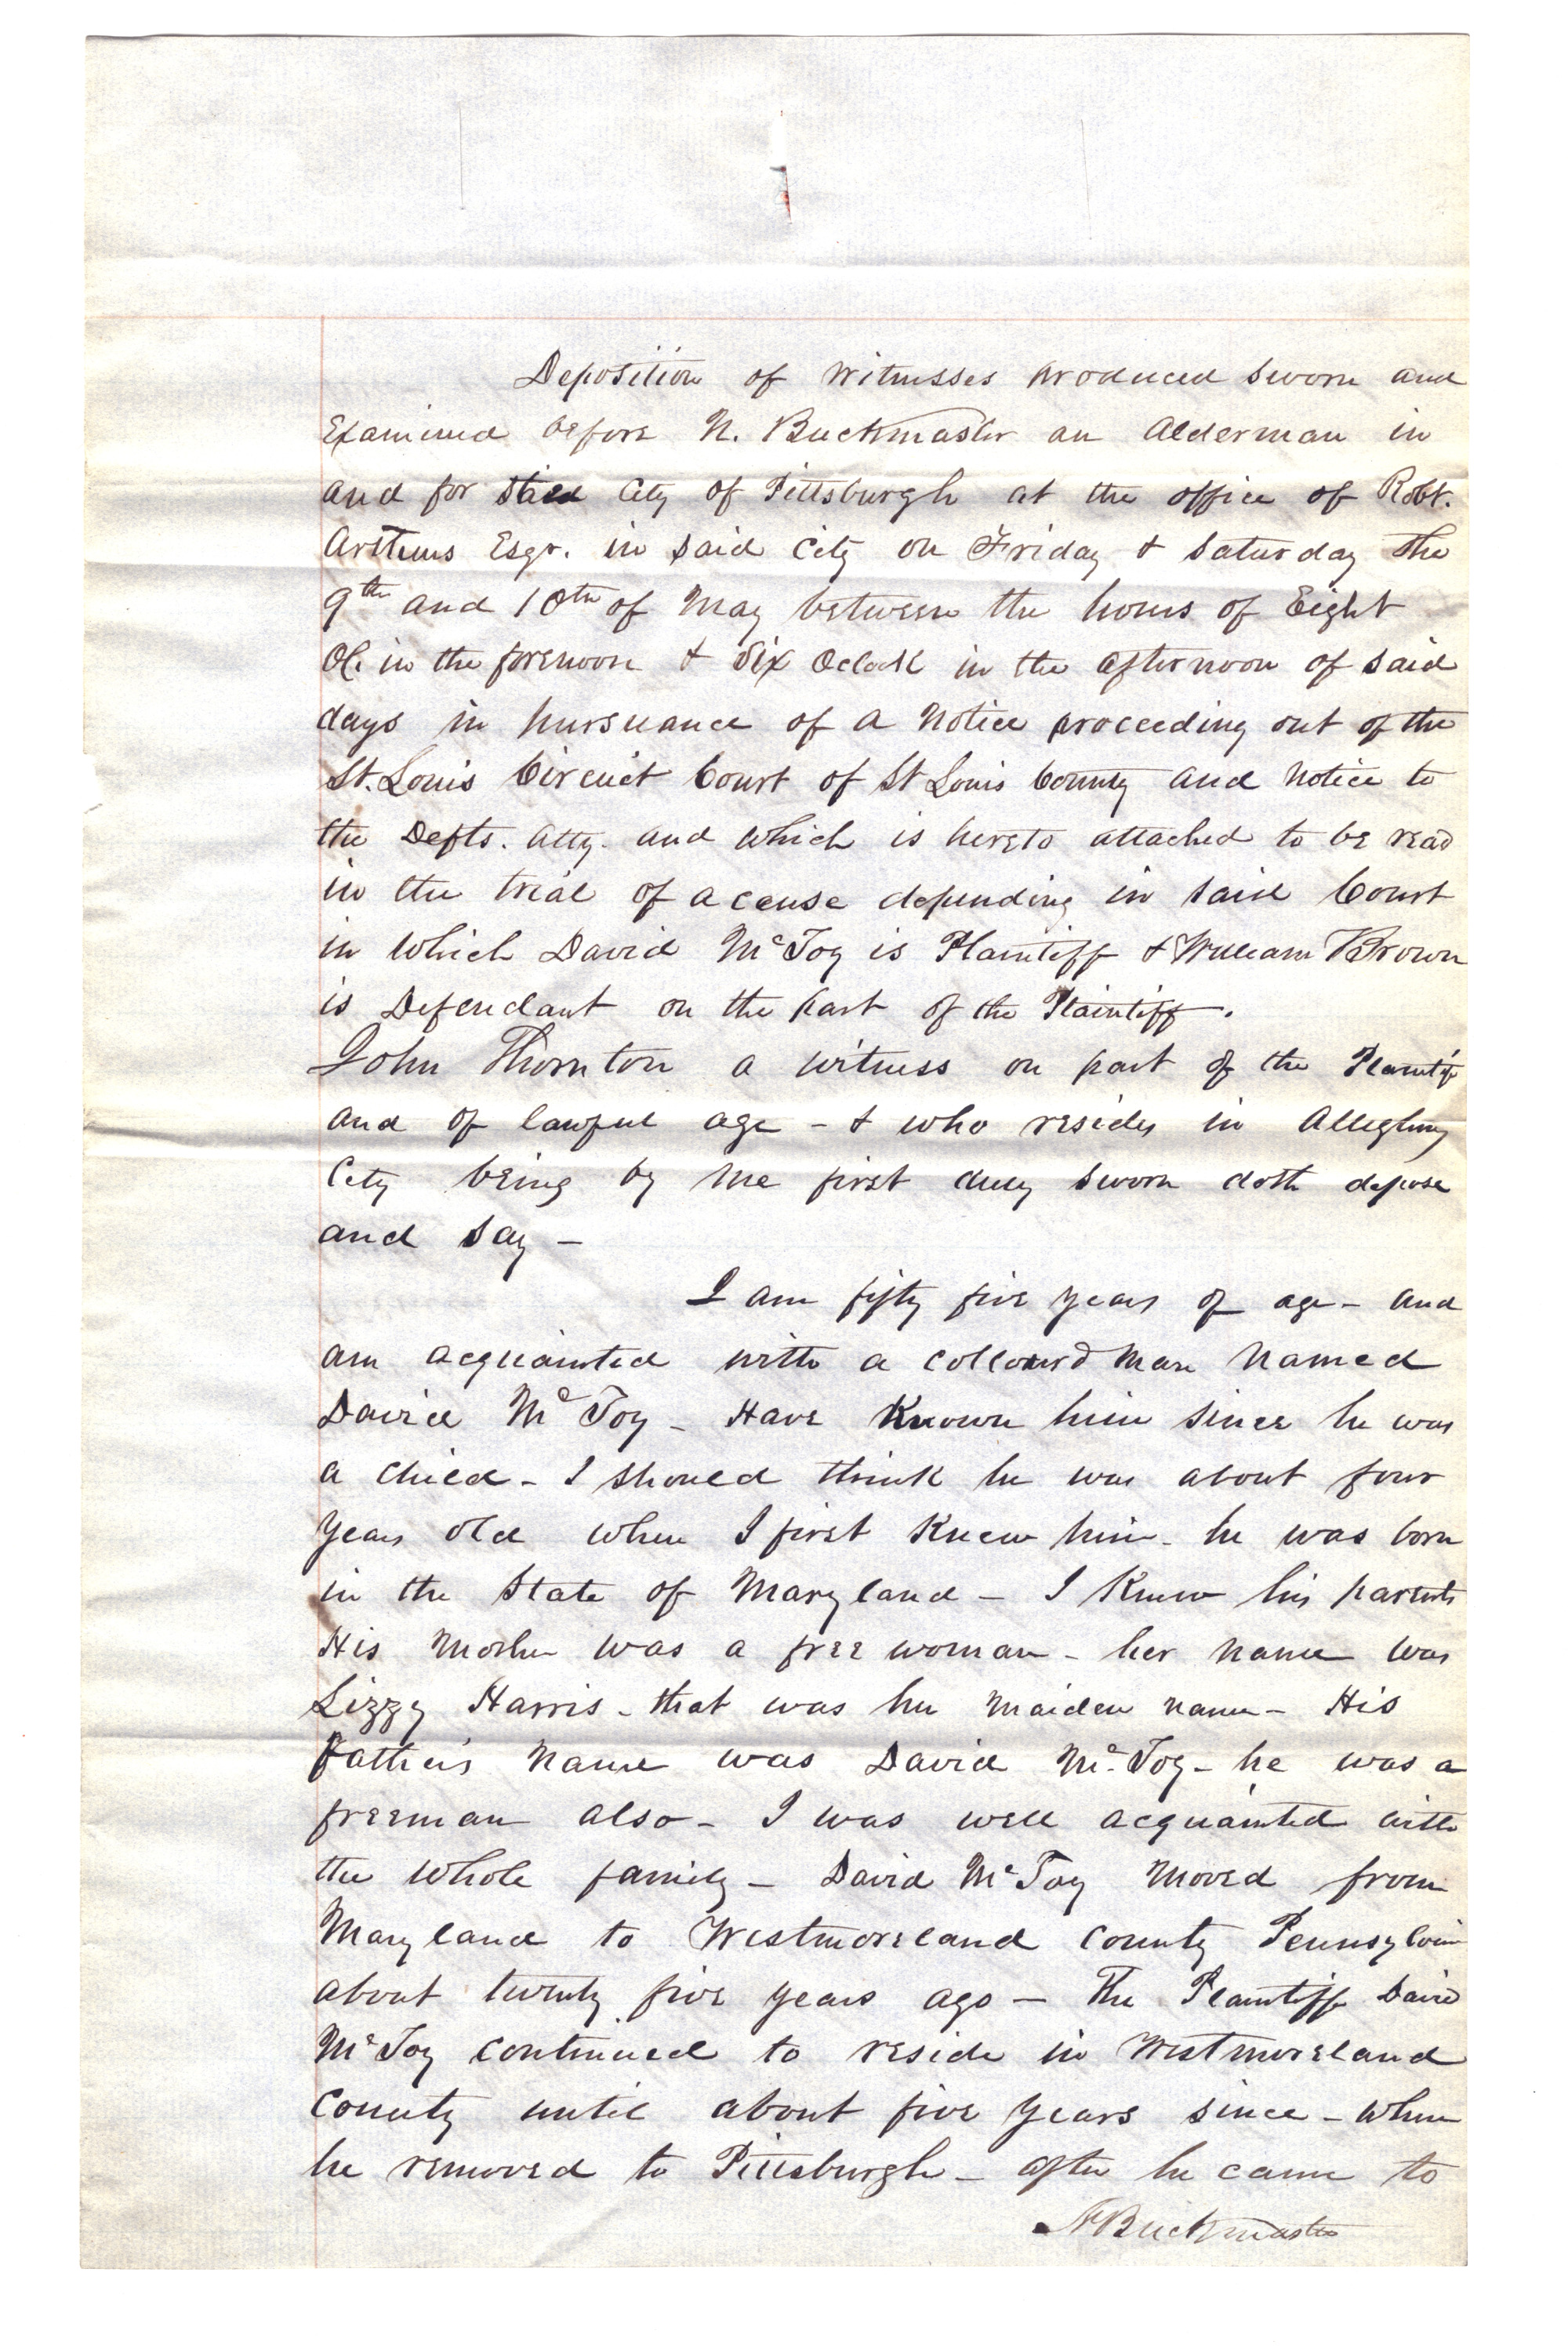 Deposition of witnesses produced sworn and
Examined before N. Buckmaster an Alderman in
and for said City of Pittsburgh at the office of Robt.
Arthurs Esqr. in said City on Friday & Saturday the
9th and 10th of May between the hours of Eight
OC. in the forenoon & Six Oclock in the afternoon of said
days in pursuance of a Notice proceeding out of the
St. Louis Circuit Court of St Louis County and Notice to
the Defts. Atty. and which is hereto attached to be read
in the trial of a cause depending in said Court
in which David McFoy is Plaintiff & William Brown
is Defendant on the part of the Plaintiff.
John Thornton a witness on part of the Plaintiff
and of lawful age - & who resides in Allegheny
City being by me first duly sworn doth depose
and say -
I am fifty five years of age - and
am acquainted with a collourd man named
David McFoy - Have Known him since he was
a child - I should think he was about four
years old when I first Knew him - he was born
in the State of Maryland - I Knew his parents
His Mother was a free woman - her name was
Lizzy Harris - that was her maiden name - His
Father's Name was David Mc.Foy - he was a
freeman also - I was well acquainted with
the whole family - David McFoy moved from
Maryland to Westmoreland County Pennsylvania
about twenty five years ago - The Plaintiff David
McFoy continued to reside in Westmoreland
County until about five years since - when
he removed to Pittsburgh - after he came to
N Buckmaster